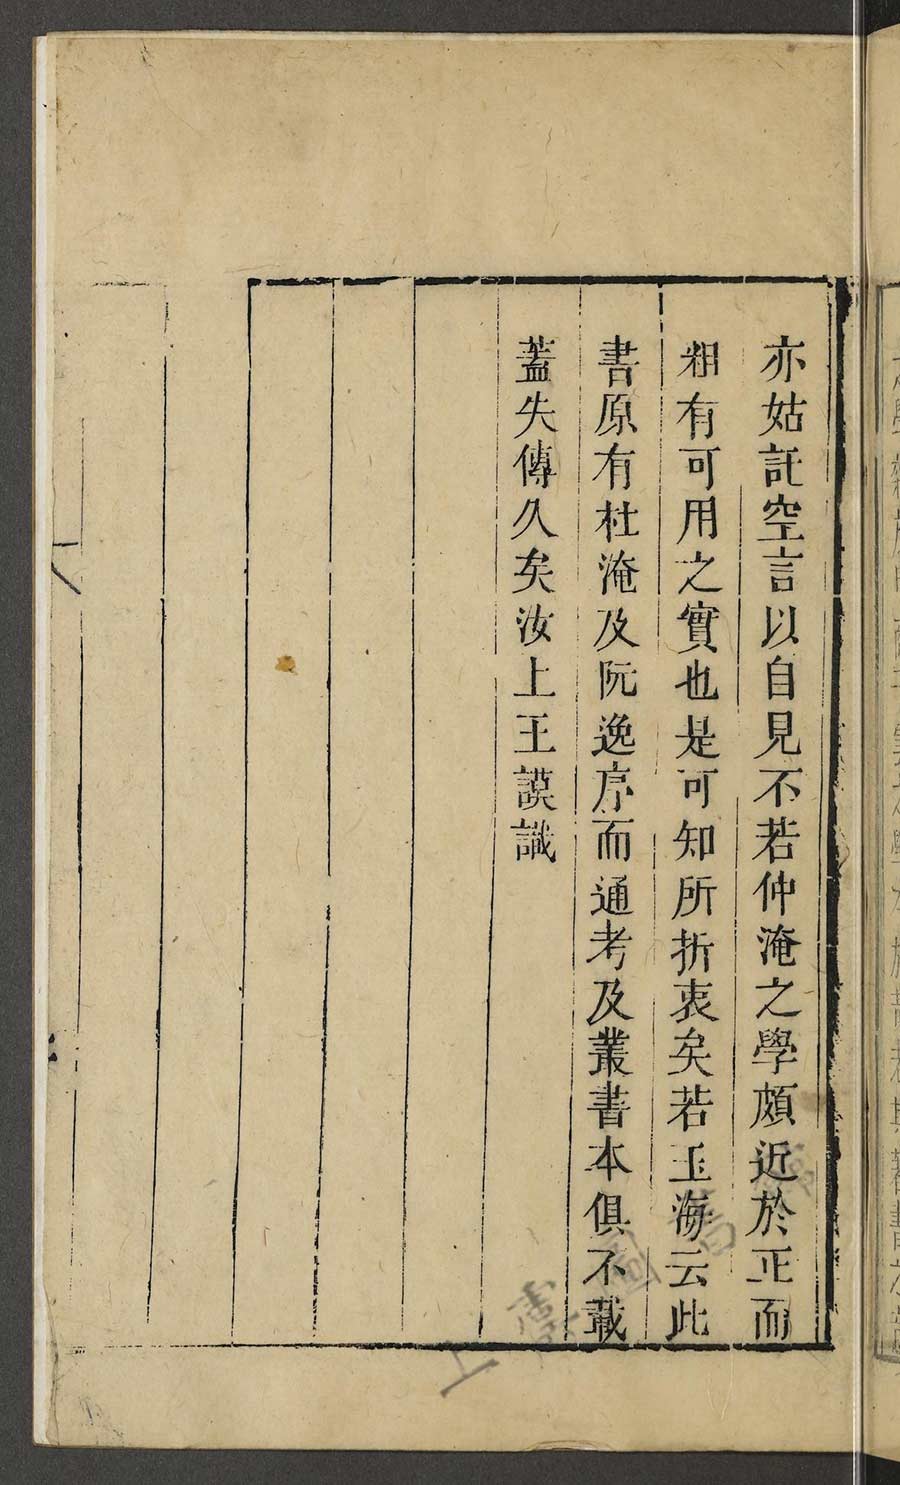 亦姑託空言以自見不若仲淹之學頗近於正而
粗有可用之實也是可知所折衷矣若玉海云此
書原有杜淹及阮逸序而通考及叢書本俱不載
蓋失傳久矣汝上王謨識